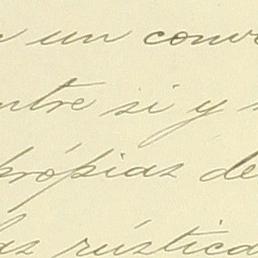 un conv
ntre si y
própias de
las rústica